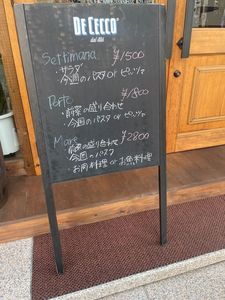 DE CECCO
dal 1886
Settimana ¥1500
・サラダ
・今週のパスタ or ピッツァ
Forte ¥1800
・前菜の盛り合わせ
・今週のパスタ or ピッツァ
Mare ¥2800
・前菜の盛り合わせ
・今週のパスタ
・お肉料理 or お魚料理